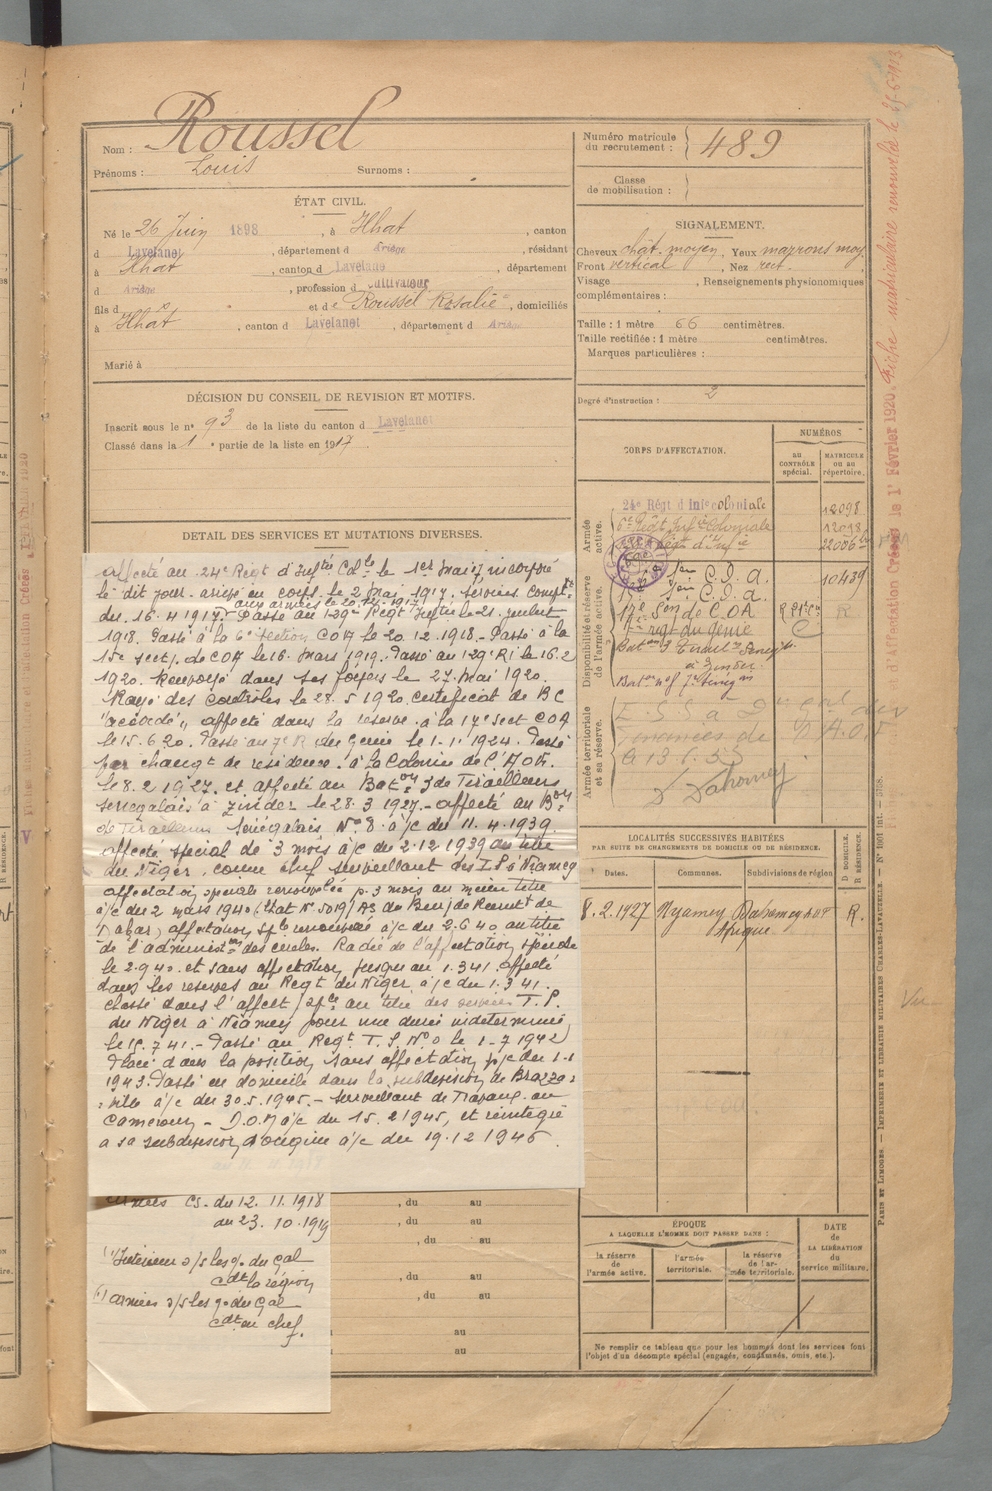 Nom : Roussel
Prénoms : Louis Surnoms :
ÉTAT CIVIL.
Né le 26 Juin 1898, à Ilhat, canton
d Lavelanet, département d Ariège, résidant
à Ilhat, canton d Lavelanet, département
d Ariège, profession d cultivateur
fils d et de Roussel Rosalie, domiciliés
à Ilhat, canton d Lavelanet, département d Ariège
Marié à
DÉCISION DU CONSEIL DE REVISION ET MOTIFS.
Inscrit sous le n° 93 de la liste du canton d Lavelanet
Classé dans la 1 e partie de la liste en 1917
DETAIL DES SERVICES ET MUTATIONS DIVERSES.
affecté au 24e Régt d'Inftie Colle le 1er Mai 17, incorporé
le dit jour. arrivé au corps le 2 Mai 1917. Services compt.
du 16.4.1917. Passé au 129e Régt Inftie le 21 juillet
1918. Passé à la 6e Section COA le 20.12.1918. Passé à la
15e sect. de COA le 16. Mars 1919. Passé au 129e RI le 16.2
1920. Renvoyé dans ses foyers le 27. Mai 1920.
Rayé des contrôles le 28.5.1920 certificat de BC
"accordé" affecté dans la réserve à la 17e Sect COA
le 15.6.20. Passé au 7e R du Génie le 1-1-1924. Passé
par changt de résidence à la Colonie de l'AOF.
le 8.2.1927. et affecté au Baton 3 de Tirailleurs
Sénégalais à Zinder le 28.3.1927.- affecté au Bon
de Tirailleurs Sénégalais N° 8 à/c du 11.4.1939.
affecté spécial de 3 mois à/c du 2.12.1939 au titre
du Niger, comme chef surveillant des à Niamey
affectation spéciale renouvelée p. 3 mois au même titre
à/c du 2 mars 1940 (Etat N° 5019/ du Bau de Recrutt de
Dakar) affectation sple renouvelée à/c du 2.6.40 au titre
de l'administon des cercles. Radié de l'affectation spéciale
le 2.9.40. et sans affectation jusqu'au 1.3.41. affecté
dans les réserves au Régt du Niger à/c du 1.3.41.
classé dans l'affect/spéc au titre des services T.P.
du Niger à Niamey pour une durée indéterminée
le 15.7.41. - Passé au Régt T.S. N° le 1-7-1942
Placé dans la position sans affectation p/c du 1-1
1943. Passé en domicile dans la subdivision de Brazza-
-ville à/c du 30.5.1945. - Surveillant de Travaux au
Cameroun - D.O.M à/c du 15.2.1945, et réintégré
à sa subdivision d'origine à/c du 19.12.1946
armées CS. du 12.11.1918
au 23.10.1919
Intérieur s/s les o. du Gal
cdt la région
armées s/s les o. du Gal
cdt en chef.
, du au
, du au
, du au
, du au
, du au
au
au
Numéro matricule du recrutement : 489
Classe de mobilisation :
SIGNALEMENT.
Cheveux chât. moyen, Yeux marrons moy.
Front vertical, Nez rect.
Visage, Renseignements physionomiques
complémentaires :
Taille : 1 mètre 66 centimètres.
Taille rectifiée : 1 mètre centimètres.
Marques particulières :
Degré d'instruction : 2
CORPS D'AFFECTATION.
NUMÉROS
au CONTRÔLE spécial.
MATRICULE ou au répertoire.
Armée active.
24e Régt d'Infie coloniale 12098
6e Régt Infie Coloniale 12098
Régt d'Infie 22006
Disponibilité et réserve de l'armée active.
Son C.O.A. 10439
Son C.O.A.
17e Son de COA
7e régt du génie
à Zinder
Armée territoriale et sa réserve.
Dahomey
LOCALITÉS SUCCESSIVES HABITÉES
PAR SUITE DE CHANGEMENTS DE DOMICILE OU DE RÉSIDENCE.
Dates. Communes. Subdivisions de région
D DOMICILE. R RÉSIDENCE.
8.2.1927 Nyamey Dahomey AOF R.
Afrique
ÉPOQUE
A LAQUELLE L'HOMME DOIT PASSER DANS :
la réserve de l'armée active.
l'armée territoriale.
la réserve de l'armée territoriale.
DATE de LA LIBÉRATION du service militaire.
Ne remplir ce tableau que pour les hommes dont les services font
l'objet d'un décompte spécial (engagés, condamnés, omis, etc.).
PARIS ET LIMOGES. — IMPRIMERIE ET LIBRAIRIE MILITAIRES CHARLES-LAVAUZELLE.
Fiche matriculaire renouvelée le
d'Affectation Créées le 1r Février 1920.
Vu